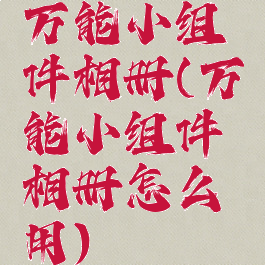 万能小组
件相册(万
能小组件
相册怎么
用)